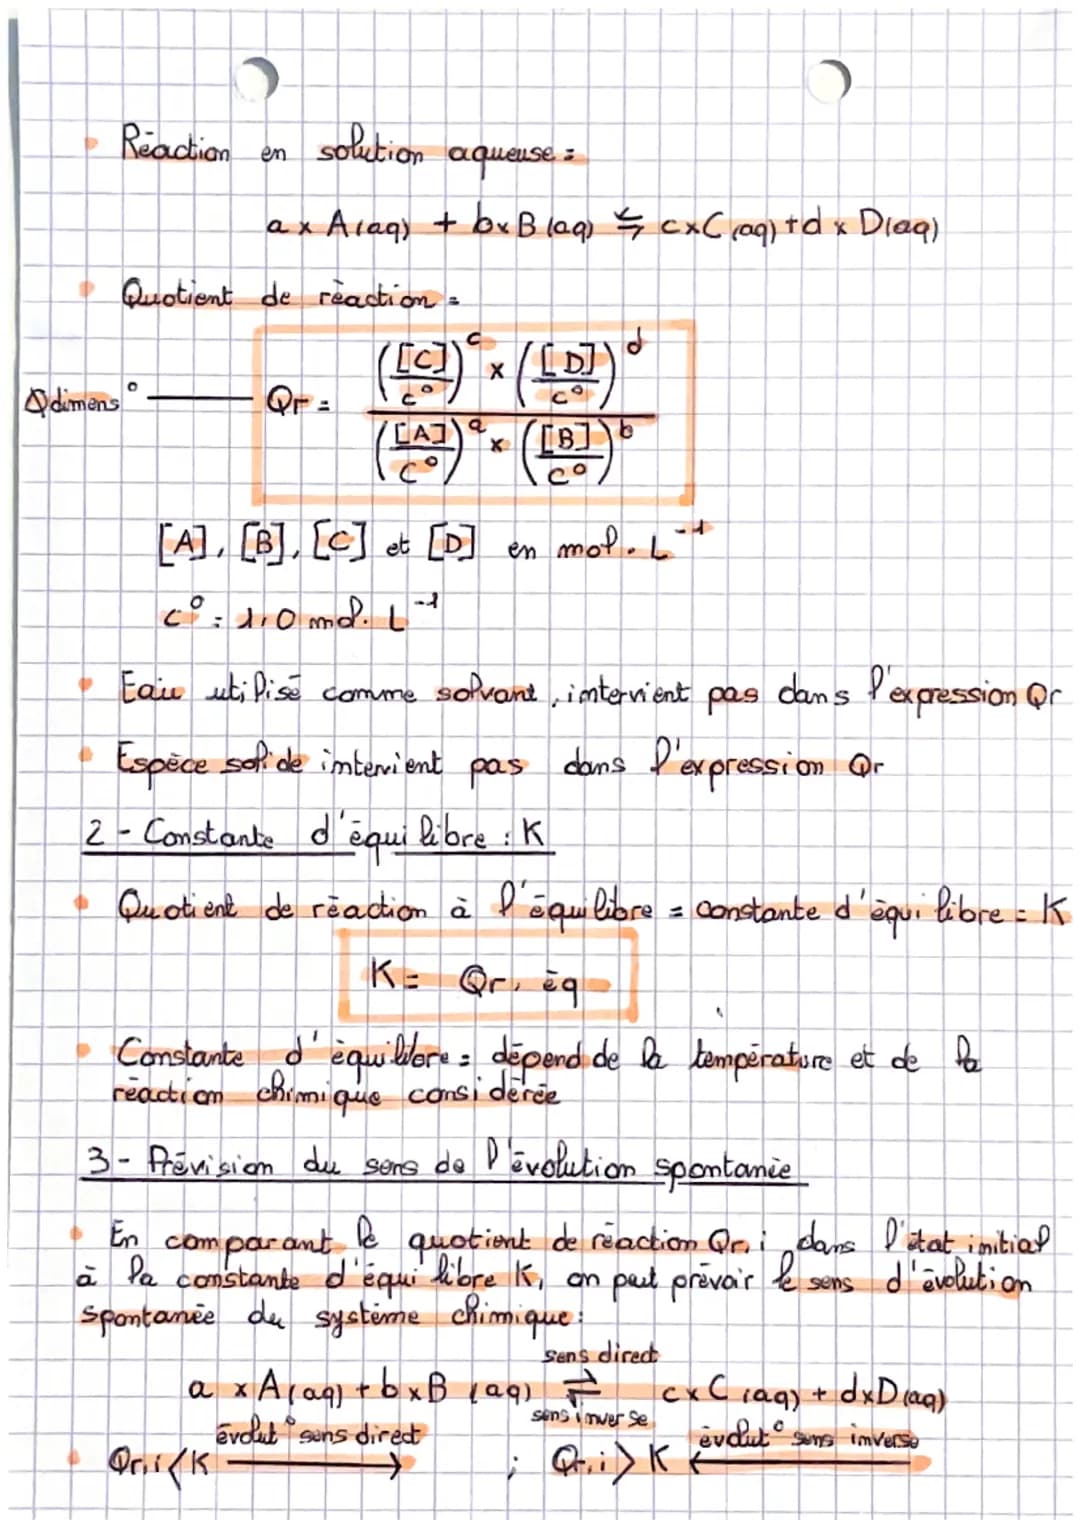 Réaction en solution aqueuse =
a x A(aq) + b x B(aq) ⇆ c x C(aq) + d x D(aq)
Quotient de réaction =
Qr = (([C]/c°)^c x ([D]/c°)^d) / (([A]/c°)^a x ([B]/c°)^b)
[A], [B], [C] et [D] en mol.L⁻¹
c° = 1,0 mol.L⁻¹
Eau utilisé comme solvant, intervient pas dans l'expression Qr
Espèce solide intervient pas dans l'expression Qr
2 - Constante d'équilibre : K
Quotient de réaction à l'équilibre = constante d'équilibre = K
K = Qr, éq
Constante d'équilibre = dépend de la température et de la
réaction chimique considérée
3 - Prévision du sens de l'évolution spontanée
En comparant le quotient de réaction Qr,i dans l'état initial
à la constante d'équilibre K, on peut prévoir le sens d'évolution
spontanée du système chimique :
sens direct
a x A(aq) + b x B(aq) ⇌ c x C(aq) + d x D(aq)
sens inverse
évolut° sens direct
évolut° sens inverse
Qr,i < K ⟶ ; Qr,i > K ⟵